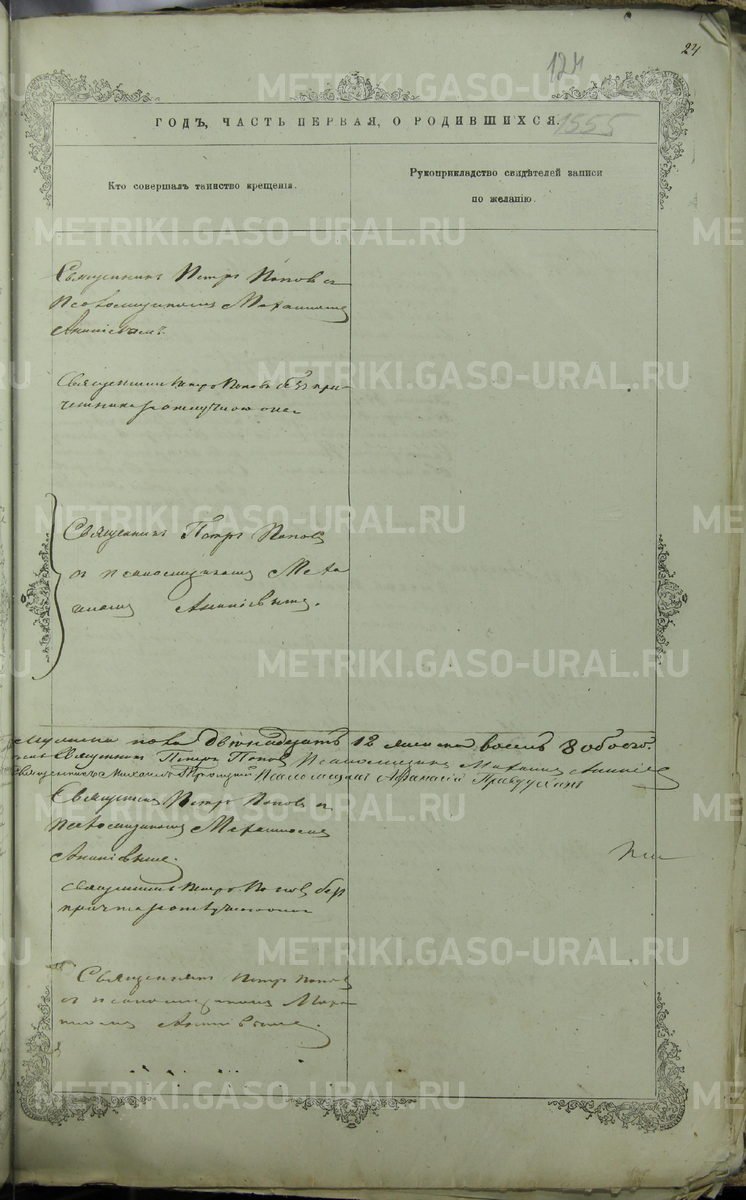 24
124
ГОДЪ, ЧАСТЬ ПЕРВАЯ, О РОДИВШИХСЯ.
1555
Кто совершалъ таинство крещенія.
Рукоприкладство свидѣтелей записи
по желанію.
Священникъ Петръ Поповъ съ
псаломщикомъ Михаиломъ
Ананіевымъ.
Священникъ Петръ Поповъ безъ при-
четника
Священникъ Петръ Поповъ
съ псаломщикомъ Миха
иломъ Ананіевымъ.
двѣнадцать 12 женска восемь 8 обоего
Священникъ Петръ Поповъ Псаломщикъ Михаилъ Ананіев
Священникъ Михаилъ Псаломщикъ Афанасій
Священникъ Петръ Поповъ съ
псаломщикомъ Михаиломъ
Ананіевымъ.
Священникъ Петръ Поповъ без
причта
Священникъ Петръ Поповъ
съ псаломщикомъ Миха
иломъ Ананіевымъ.
METRIKI.GASO-URAL.RU